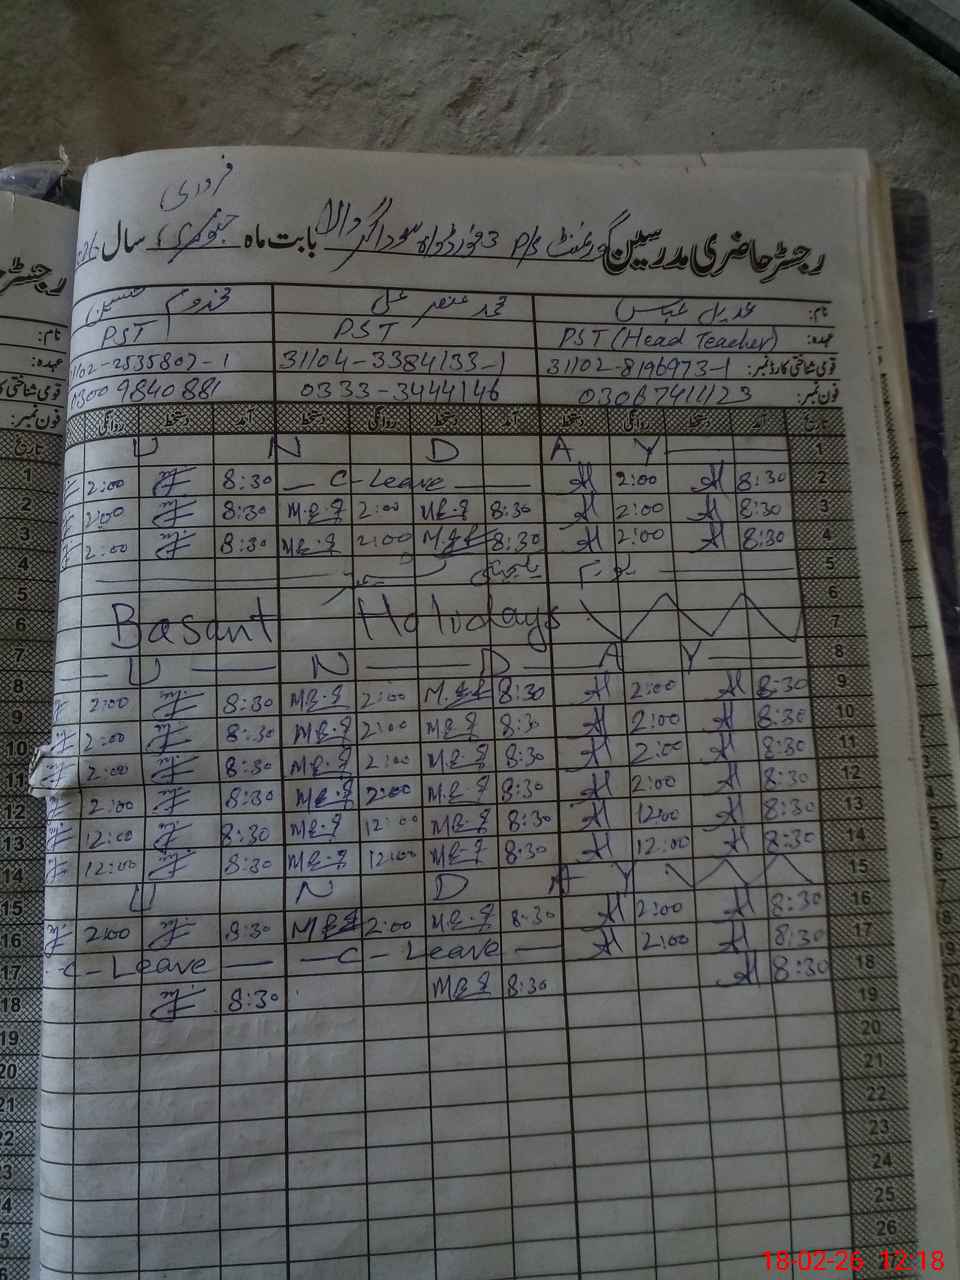 رجسٹر حاضری مدرسین گورنمنٹ P/S سوداگر والا بابت ماہ جنوری فروری سال
نام: عدیل عباس محمد عنصر علی مخدوم حسین
عہدہ: PST (Head Teacher) PST PST
قومی شناختی کارڈ نمبر: 31102-8196973-1 31104-3384133-1 31102-2535807-1
فون نمبر: 03067411123 0333-3444146 0300 9840881
تاریخ آمد دستخط روانگی دستخط آمد دستخط روانگی دستخط آمد دستخط روانگی
1 U N D A Y
2 8:30 2:00 C-Leave 8:30 2:00
3 8:30 2:00 8:30 2:00 8:30 2:00
4 8:30 2:00 8:30 2:00 8:30 2:00
5 یوم یکجہتی کشمیر
6
7 Basant Holidays
8 U N D A Y
9 8:30 2:00 8:30 2:00 8:30 2:00
10 8:30 2:00 8:30 2:00 8:30 2:00
11 8:30 2:00 8:30 2:00 8:30 2:00
12 8:30 2:00 8:30 2:00 8:30 2:00
13 8:30 12:00 8:30 12:00 8:30 12:00
14 8:30 12:00 8:30 12:00 8:30 12:00
15 U N D A Y
16 8:30 2:00 8:30 2:00 8:30 2:00
17 8:30 2:00 C-Leave C-Leave
18 8:30 8:30 8:30
19
20
21
22
23
24
25
26
18-02-26 12:18